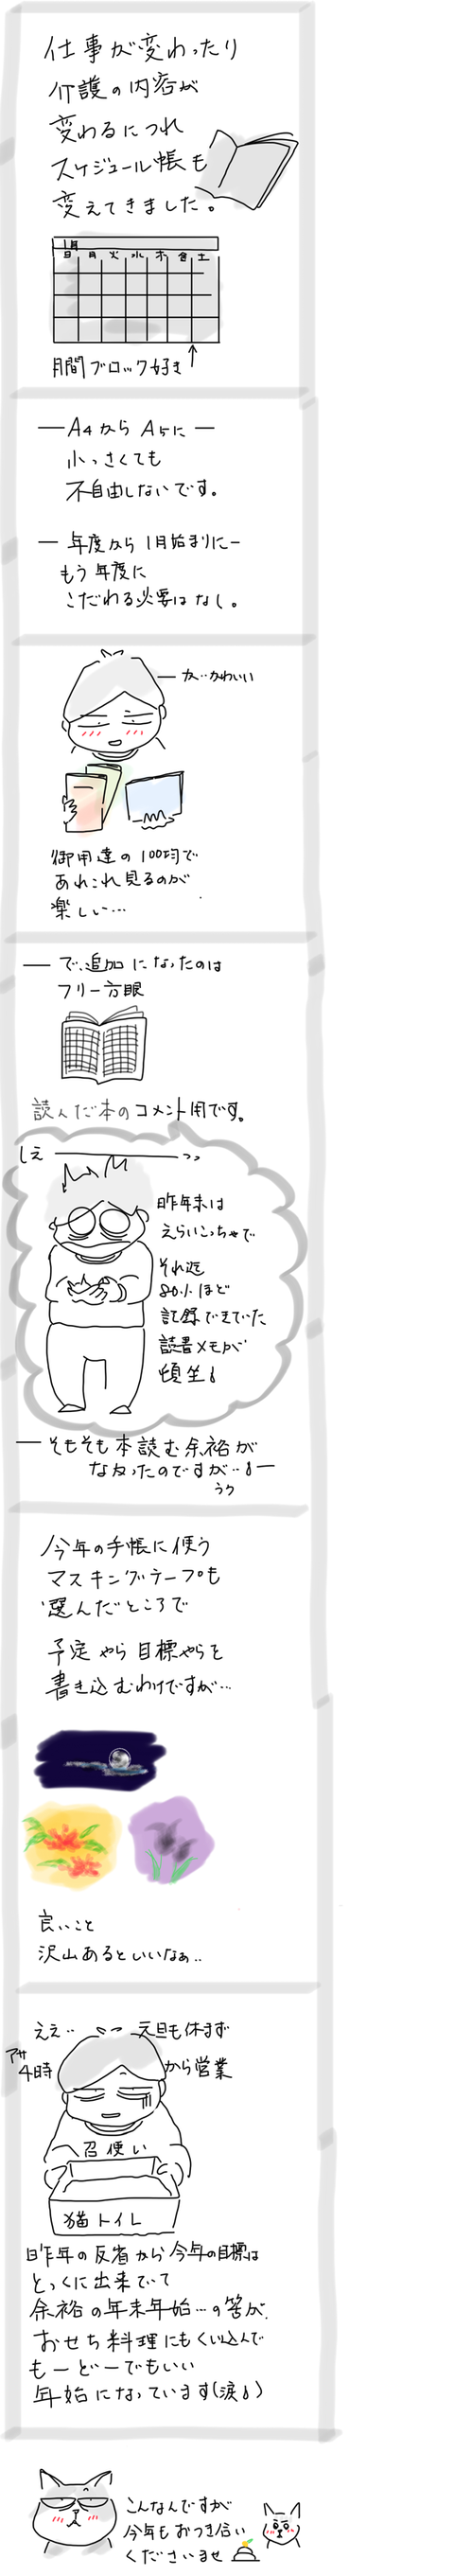 仕事が変わったり
介護の内容が
変わるにつれ
スケジュール帳も
変えてきました。
1月
日 月 火 水 木 金 土
月間ブロック好き
―A4からA5に―
小っさくても
不自由しないです。
― 年度から1月始まりに―
もう年度に
こだわる必要はなし。
― カ‥かわいい
御用達の100均で
あれこれ見るのが
楽しい…
― で、追加になったのは
フリー方眼
読んだ本のコメント用です。
しえ
昨年末は
えらいこっちゃで
それ迄
80%ほど
記録できていた
読書メモが
頓挫
― そもそも本読む余裕が
なかったのですが‥―
うク
今年の手帳に使う
マスキングテープも
選んだところで
予定やら目標やらを
書き込むわけですが…
良いこと
沢山あるといいなぁ‥
ええ‥
元旦も休まず
アサ
4時
から営業
召使い
猫トイレ
昨年の反省から今年の目標は
とっくに出来ていて
余裕の年末年始…の筈が、
おせち料理にもくい込んで
もーどーでもいい
年始になっています(涙)
こんなんですが
今年もおつき合い
くださいませ